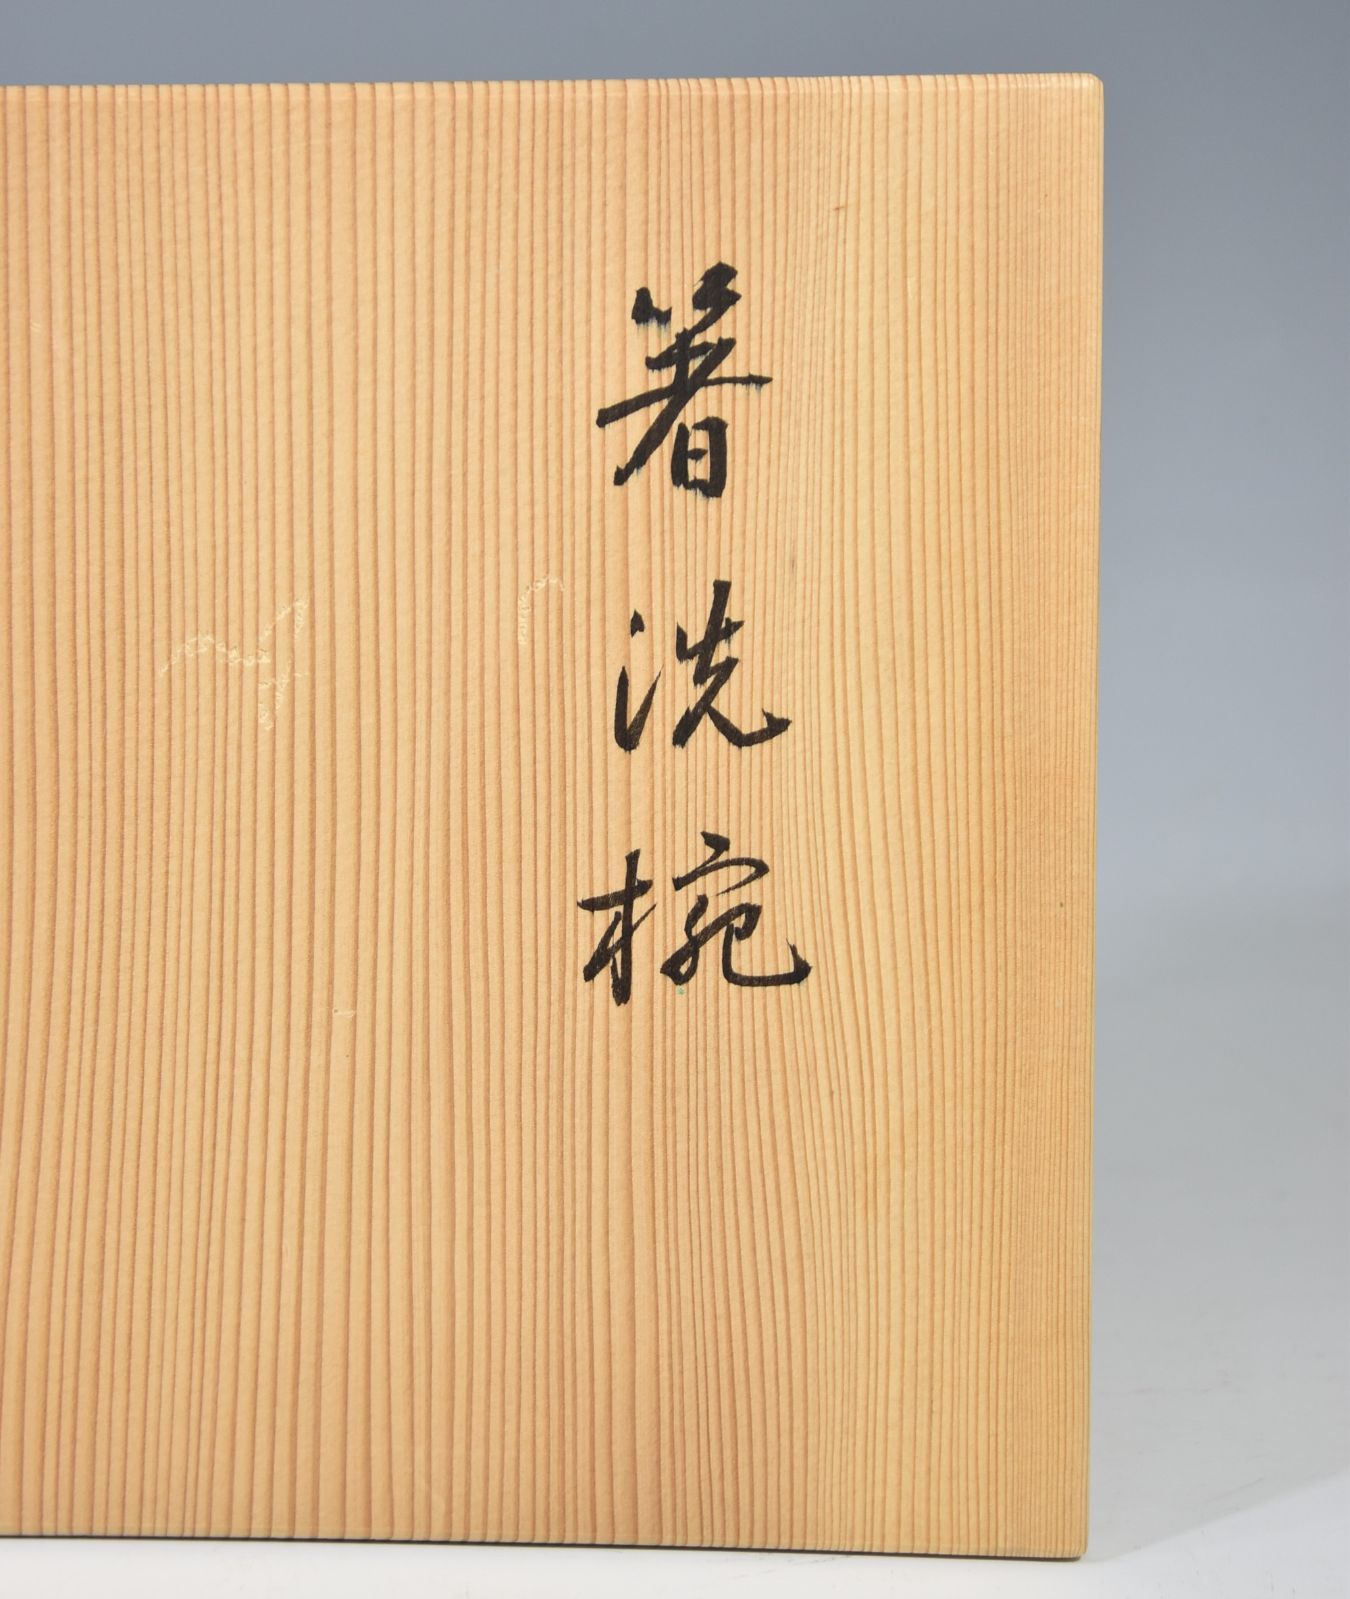 箸洗椀